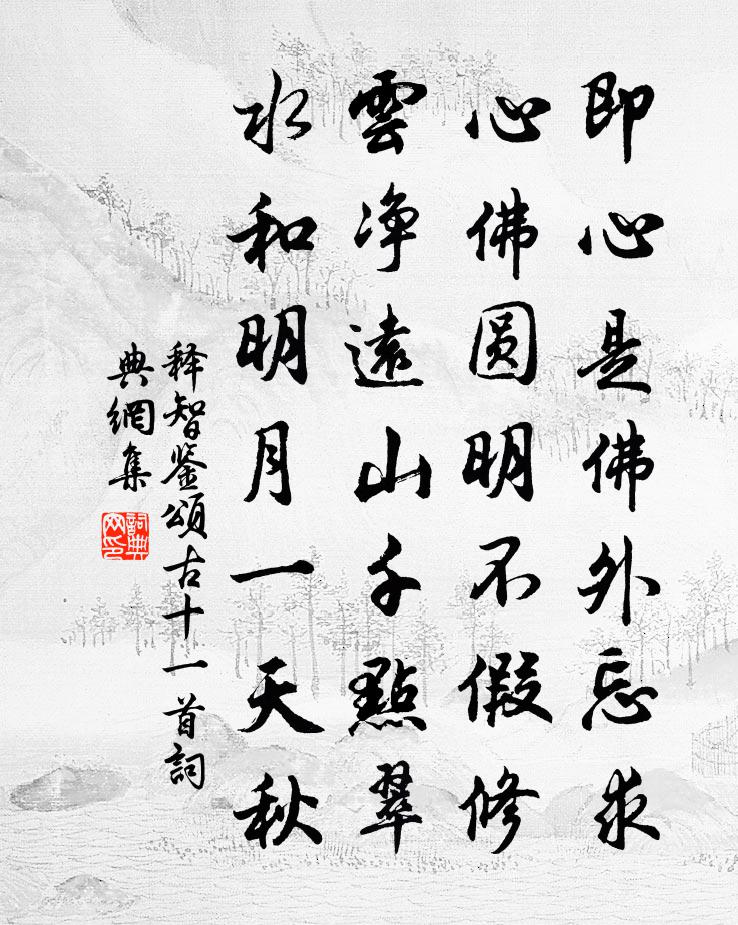 即心是佛外忘求
心佛圆明不假修
雲净遠山千點翠
水和明月一天秋
释智鉴頌古十一首詞
典網集
詞典
网印